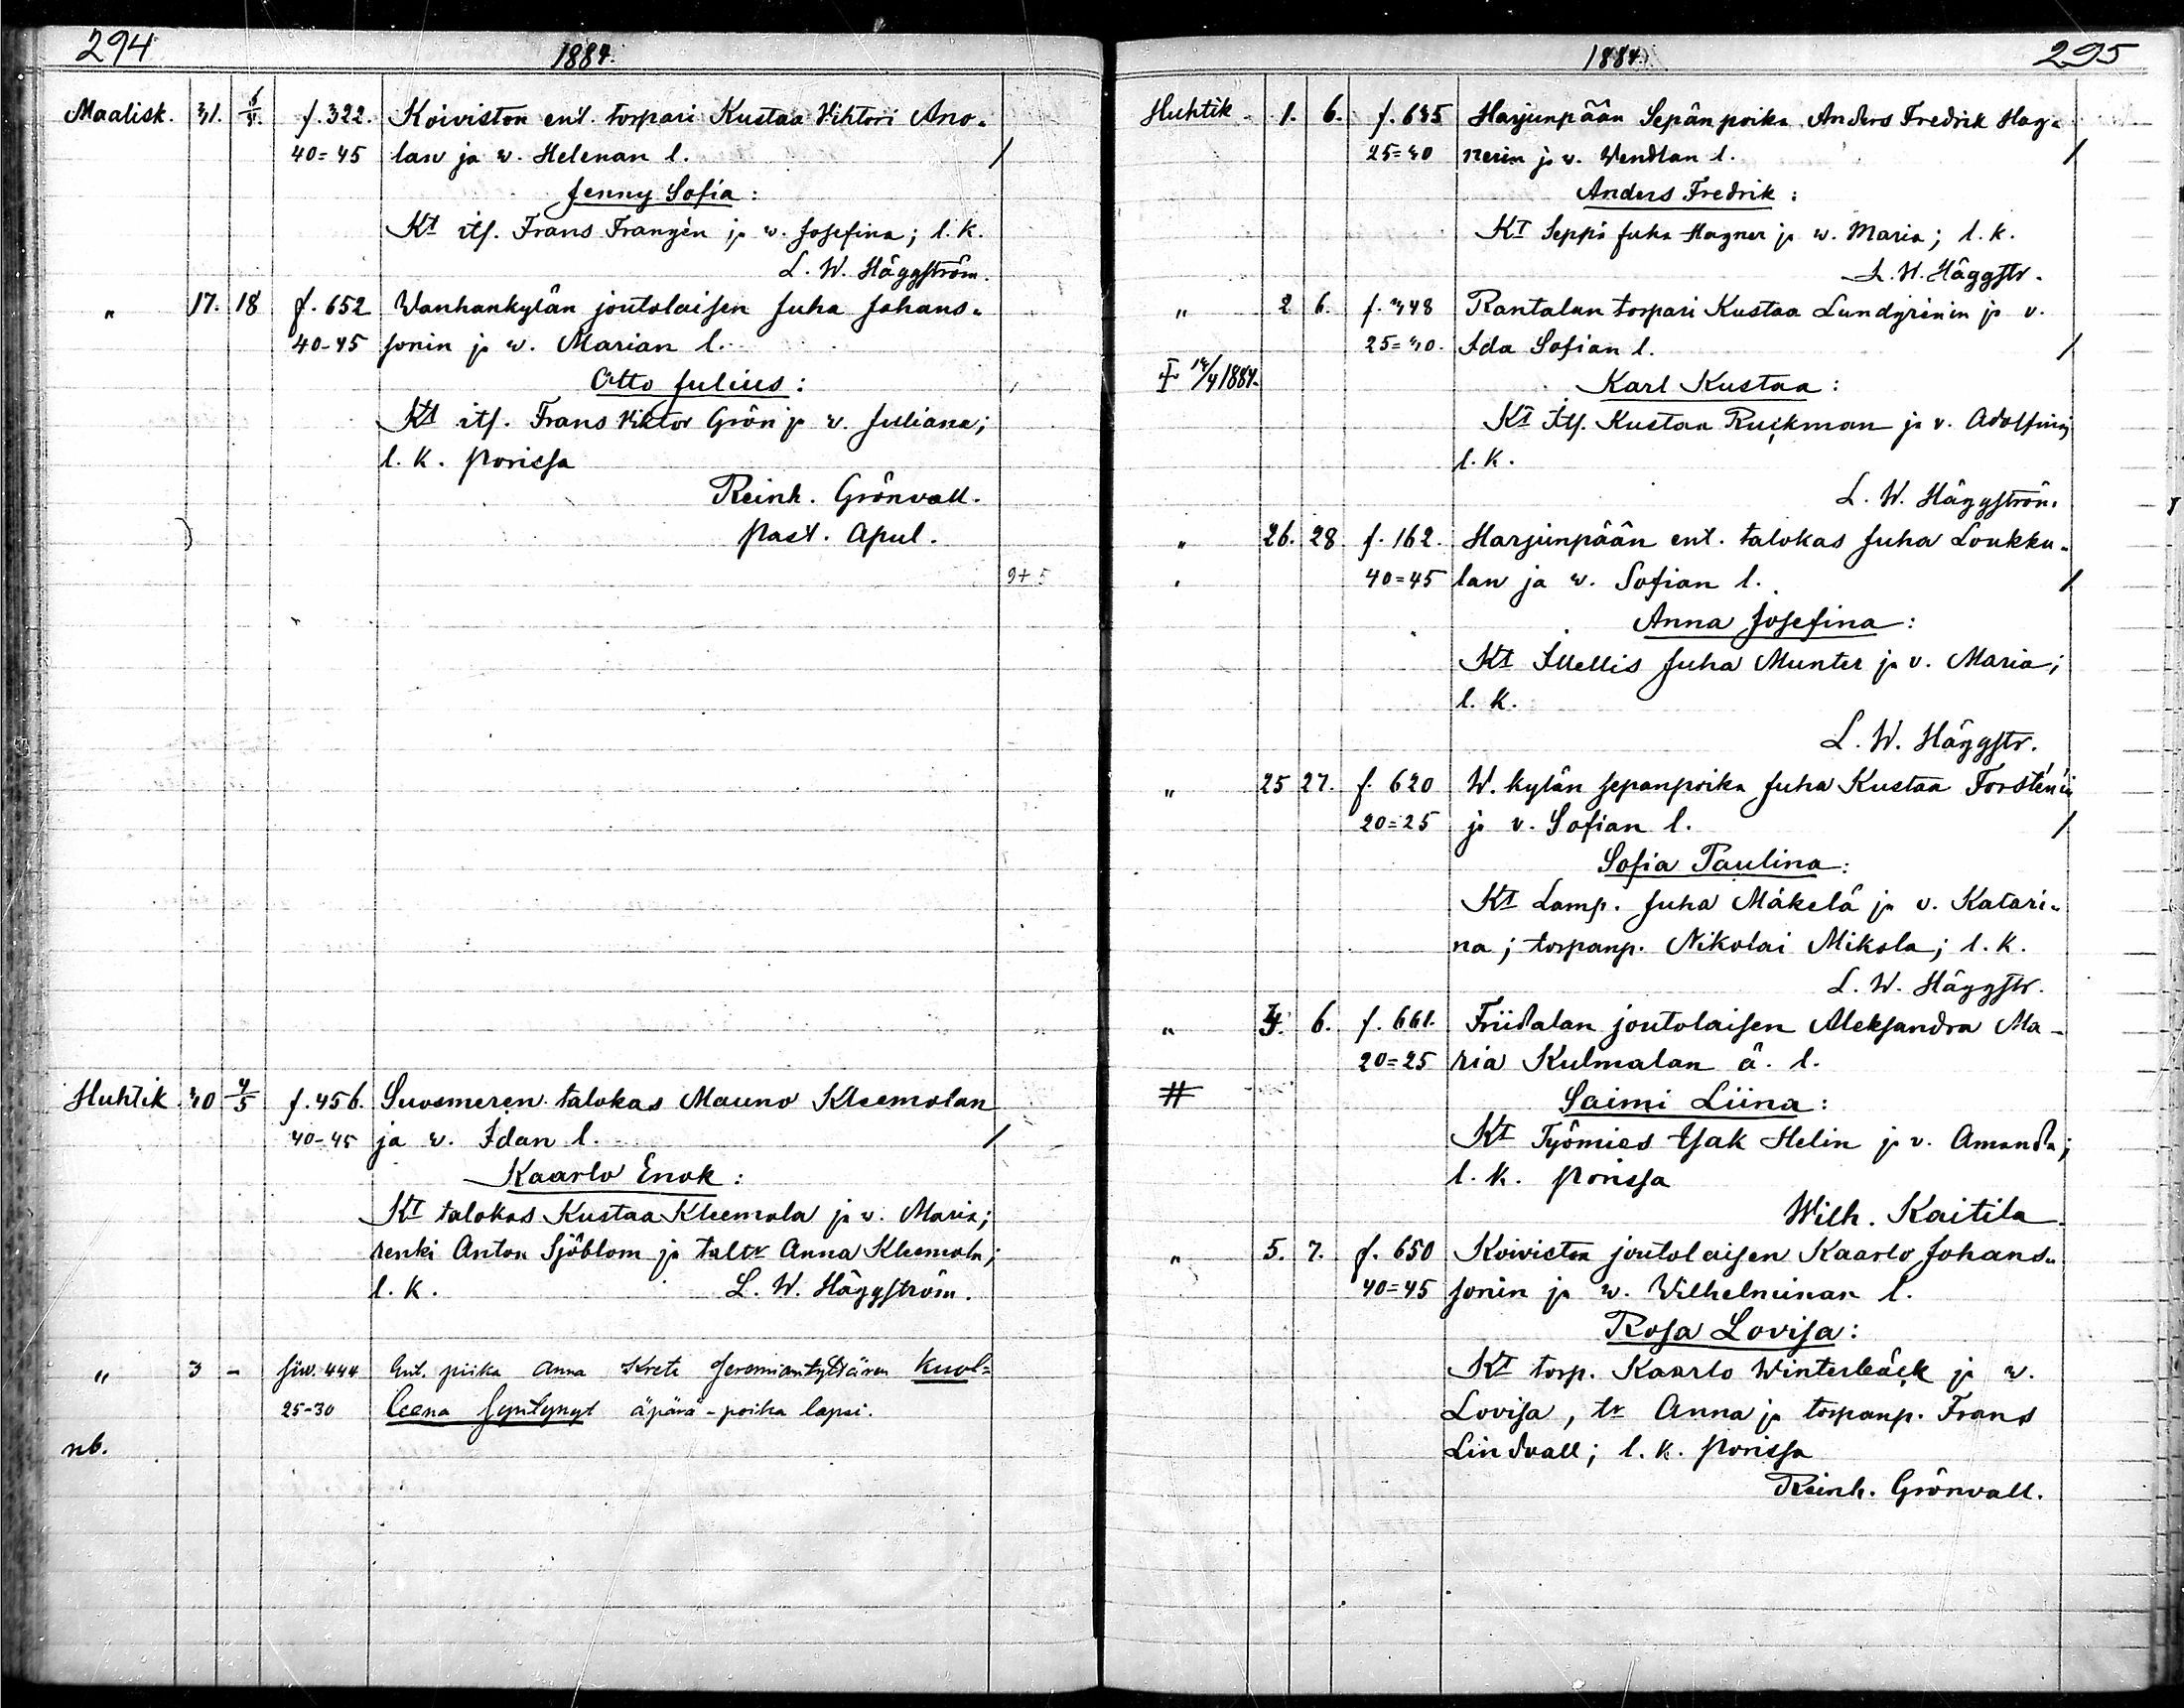 294
1884.
Maalisk. 31. 6/4. f. 322. Koiviston ent. torpari Kustaa Vihtori Ano-
40=45 lan ja w. Helenan l.
Jenny Sofia:
Kt itf. Frans Frangén ja w. Josefina; l. k.
L. W. Häggström.
" 17. 18 f. 652 Wanhankylän joutolaisen Juha Johans-
40-45 sonin ja w. Marian l.
Otto Julius:
Kt itf. Frans Viktor Grön ja w. Julliana;
l. k. Porissa
Reinh. Grönvall.
Past. Apul.
9+5
Huhtik. 30 4/5 f. 456. Suosmeren talokas Mauno Kleemolan
40-45 ja w. Idan l.
Kaarlo Enok:
Kt talokas Kustaa Kleemola ja w. Maria;
renki Anton Sjöblom ja taltr Anna Kleemola;
l. k. L. W. Häggström.
" 3 - siv. 444 Ent. piika Anna Kreta Jeremiantyttären kuol=
25-30 leena syntynyt äpärä-poika lapsi.
nb.
1884.
295
Huhtik. 1. 6. f. 635 Harjunpään Sepänpoika Anders Fredrik Hag-
25=30 nerin ja v. Wendlan l.
Anders Fredrik:
Kt Seppä Juha Hagner ja w. Maria; l. k.
L. W. Häggstr.
" 2 6. f. 348 Rantalan torpari Kustaa Lundgrénin ja v.
25=30. Ida Sofian l.
14/4 1884. Karl Kustaa:
Kt Itf. Kustaa Ruckman ja v. Adolfina;
l. k.
L. W. Häggström.
" 26. 28 f. 162. Harjunpään ent. talokas Juha Loukku-
40=45 lan ja w. Sofian l.
Anna Josefina:
Kt Itellis Juha Munter ja v. Maria;
l. k.
L. W. Häggstr.
" 25 27. f. 620 W. kylän sepänpoika Juha Kustaa Forsténin
20=25 ja v. Sofian l.
Sofia Paulina:
Kt Lamp. Juha Mäkelä ja v. Katari-
na; torpanp. Nikolai Mikola; l. k.
L. W. Häggstr.
" 6. f. 661. Friidalan joutolaisen Aleksandra Ma-
20=25 ria Kulmalan ä. l.
# Saimi Liina:
Kt Työmies Isak Helin ja v. Amanda;
l. k. Porissa
Wilh. Kaitila.
" 5. 7. f. 650 Koiviston joutolaisen Kaarlo Johans-
40=45 sonin ja w. Wilhelminan l.
Rosa Lovisa:
Kt torp. Kaarlo Winterbäck ja w.
Lovisa, tr Anna ja torpanp. Frans
Lindvall; l. k. Porissa
Reinh. Grönvall.